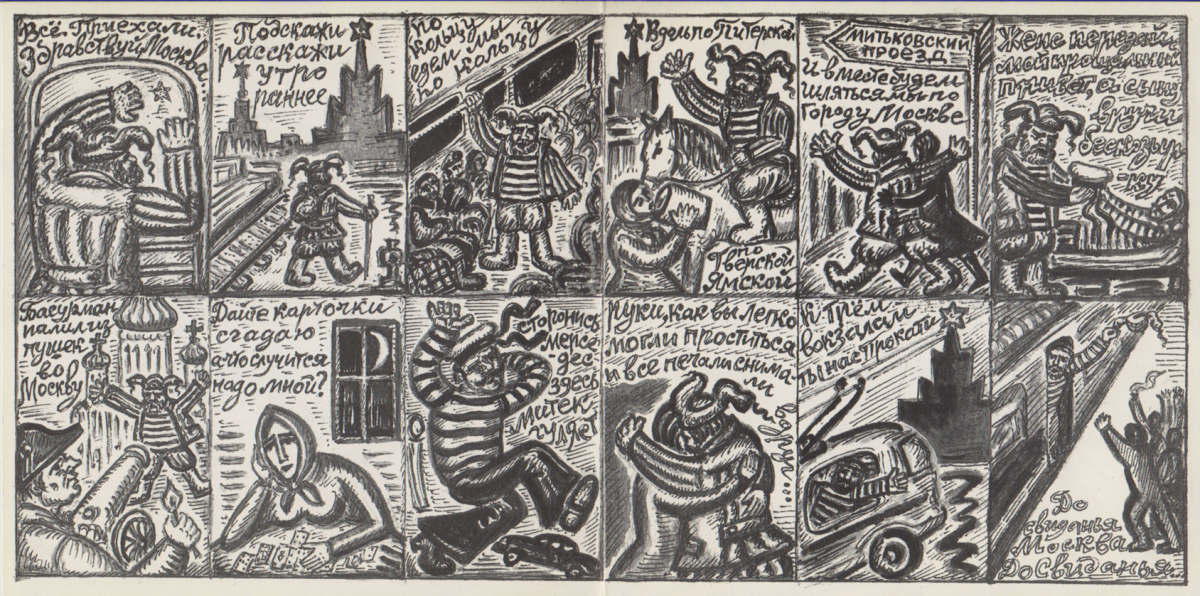 Всё. Приехали.
Здравствуй, Москва.
Подскажи
расскажи
утро
раннее
По
кольцу
едем мы
по кольцу
Вдель по Питерской
по
Тверской
Ямской
МИТЬКОВСКИЙ
ПРОЕЗД
И вместе будем
шляться мы по
городу Москве
Жене передай
мой прощальный
привет, а сыну
вручи
бескозыр-
-ку
Басурман
палил из
пушек
во
Москву
Дайте карточки
сгадаю
а что случится
надо мной?
сторонись
мерсе-
дес
здесь
митёк
гуляет
руки, как вы легко
могли проститься
и все печали снима-
ли вдруг....
К трём
вокзалам
ты нас прокати
До
свиданья
Москва
До Свиданья...